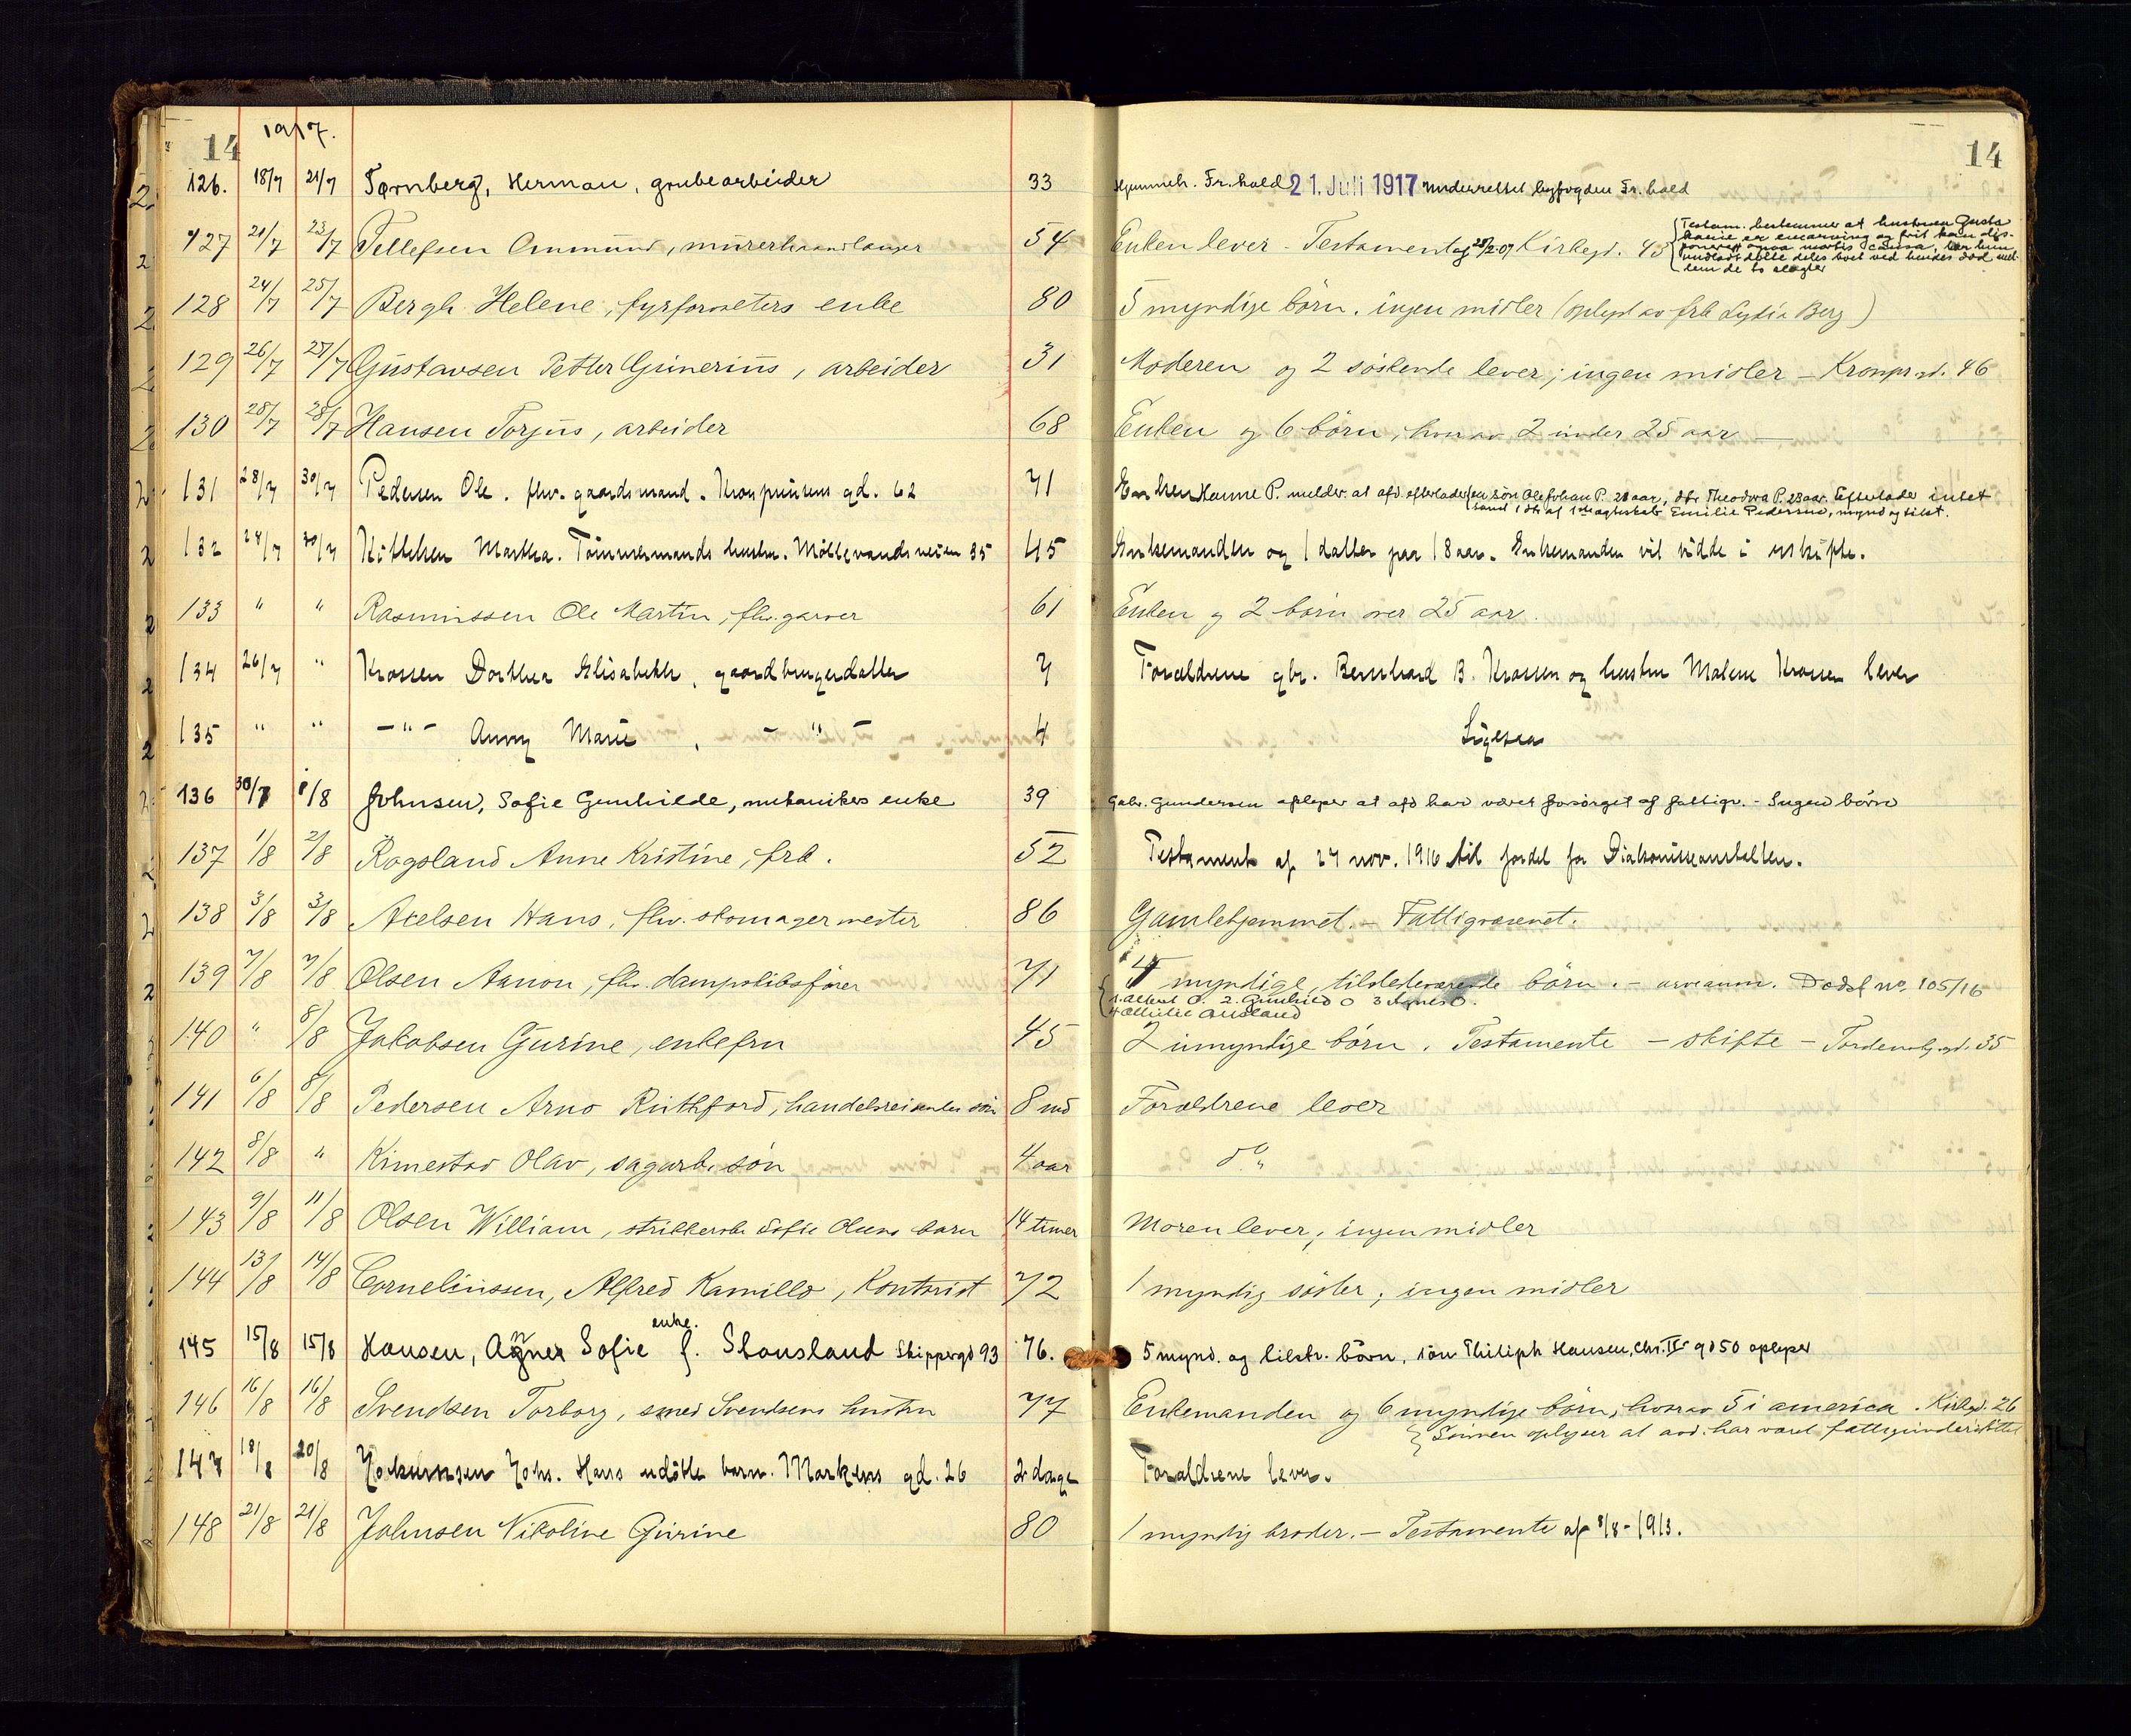 14 1917. 14
126. 18/7 21/7 Tørnberg, Herman, grubearbeider 33 Hjemmeh. Fr.hald 21. Juli 1917 Underrettet byfogden Fr. hald
127 21/7 23/7 Tellefsen Ommund, murerhaandlanger 54 Enken lever - Testamente Kirkegd. 43 { Testam. bestemmer at hustruen
er enearving og frit kan dis-
ponere mortis causa, har hun
undladt dette deles boet ved hendes død mel-
lem de to slægter
128 24/7 25/7 Bergh Helene, fyrforvalters enke 80 5 myndige börn. ingen midler (oplyst av frk Lydia Berg)
129 26/7 27/7 Gustavsen Petter Gunerius, arbeider 31 Moderen og 2 søskende lever; ingen midler - Kronprgd. 46
130 28/7 28/7 Hansen Torjus, arbeider 68 Enken og 6 börn, hvorav 2 under 25 aar
131 28/7 30/7 Pedersen Ole. fhv. gaardsmand. Kronprinsens gd. 62 71 Enken Hanne P. melder at afd. efterlader en søn Ole Johan P. 21 aar, dtr Theodora P. 23 aar. Efterlader intet
samt 1 dtr af 1ste egteskab Emilie Pedersen, mynd og tilst.
132 28/7 30/7 Kittelsen Martha. Tömmermands hustru. Möllevandsveien 35 45 Enkemanden og 1 datter paa 18 aar. Enkemanden vil sidde i uskifte.
133 " " Rasmussen Ole Martin, fhv. garver 61 Enken og 2 börn over 25 aar.
134 26/7 " Krossen Dorthea Elisabeth, gaardbrugerdatter 7 Forældrene gbr. Bernhard B. Krossen og hustru Malene Krossen lever
135 " " - " - Anny Marie, - " - 4 Ligesaa
136 30/7 1/8 Johnsen, Sofie Gunhilde, mekanikers enke 39 Gabr. Gundersen oplyser at afd har været forsørget af fattigv. - Ingen børn
137 1/8 2/8 Rogsland Anne Kristine, frk. 52 Testament af 27 nov. 1916 til fordel for Diakonisseanstalten.
138 3/8 3/8 Axelsen Hans, fhv. skomagermester 86 Gamlehjemmet. - Fattigvæsenet.
139 7/8 7/8 Olsen Aanon, fhv. dampskibsfører 71 4 myndige, tilstedeværende börn. - arveanm. Dødsf no. 105/16
{ 1. Albert O. 2. Gunhild O 3 Agnes O.
4 Ausland
140 " 8/8 Jakobsen Gurine, enkefru 45 2 umyndige börn. Testamente - skifte - Tordenskj.gd. 35
141 6/8 8/8 Pedersen Arno Ruthford, handelsreisendes sön 8 md Forældrene lever
142 8/8 " Kimestad Olav, sagarb. sön 4 aar do "
143 9/8 11/8 Olsen William, strikkerske Sofie Olsens barn 14 timer Moren lever; ingen midler
144 13/8 14/8 Corneliussen, Alfred Kamillo, Kontorist 72 1 myndig söster; ingen midler
enke.
145 15/8 15/8 Hansen, Agnes Sofie f. Stousland Skippergd 93 76. 5 mynd. og tilst. börn, sön Thiliph Hansen, Chr. IVs gd 50 oplyser
146 16/8 16/8 Svendsen Torborg, smed Svendsens hustru 77 Enkemanden og 6 myndige börn, hvorav 5 i america. Kirkegd. 26
{ Sönnen oplyser at avd. har været fattigunderstöttet
147 18/8 20/8 Jockumsen Johs. Hans udöbte barn. Markens gd. 26 2 dage Forældrene lever.
148 21/8 21/8 Johnsen Nikoline Gurine 80 1 myndig broder. - Testamente af 8/8 - 1913.